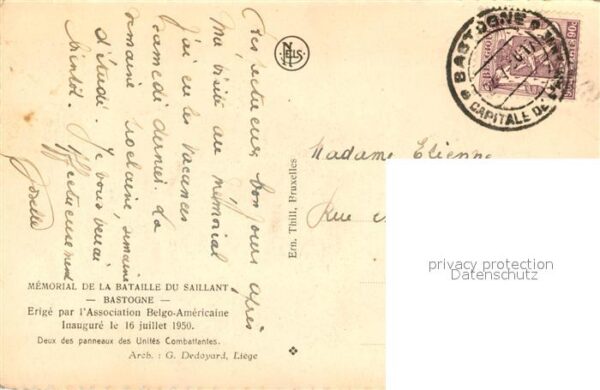 Affectueux bonjours après
Ma visite au mémorial
j'ai eu les vacances
samedi dernier. La
semaine prochaine, semaine
d'étude. Je vous verrai
bientôt. Affectueusement
Josette
NELS
Ern. Thill, Bruxelles
MÉMORIAL DE LA BATAILLE DU SAILLANT
— BASTOGNE —
Erigé par l'Association Belgo-Américaine
Inauguré le 16 juillet 1950.
Deux des panneaux des Unités Combattantes.
Arch. : G. Dedoyard, Liège
BASTOGNE
CAPITALE DE
Madame Etienne
Rue
privacy protection
Datenschutz